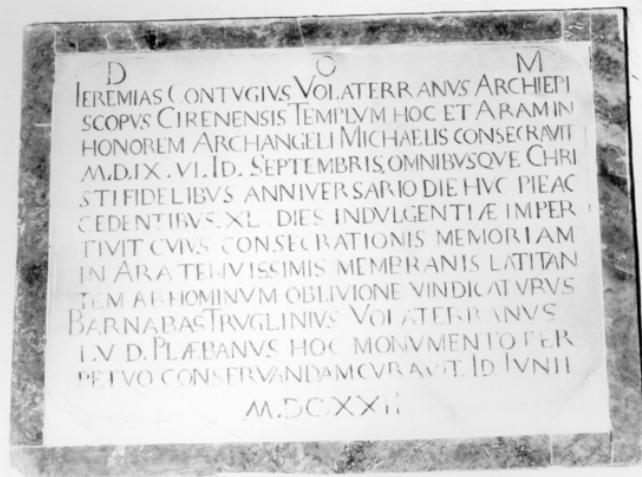 D O M
IEREMIAS CONTVGIVS VOLATERRANVS ARCHIEPI
SCOPVS CIRENENSIS TEMPLVM HOC ET ARAM IN
HONOREM ARCHANGELI MICHAELIS CONSECRAVIT
M.D.IX.VI.ID. SEPTEMBRIS, OMNIBVSQVE CHRI
STI FIDELIBVS ANNIVERSARIO DIE HVC PIE AC
CEDENTIBVS.XL. DIES INDVLGENTIÆ IMPER
TIVIT CVIVS CONSECRATIONIS MEMORIAM
IN ARA TENVISSIMIS MEMBRANIS LATITAN
TEM AB HOMINVM OBLIVIONE VINDICATVRVS
BARNABAS TRVGLINIVS VOLATERRANVS
I.V.D. PLÆBANVS HOC MONVMENTO PER
PETVO CONSERVANDAM CVRAVIT. ID IVNII
M.DCXXII